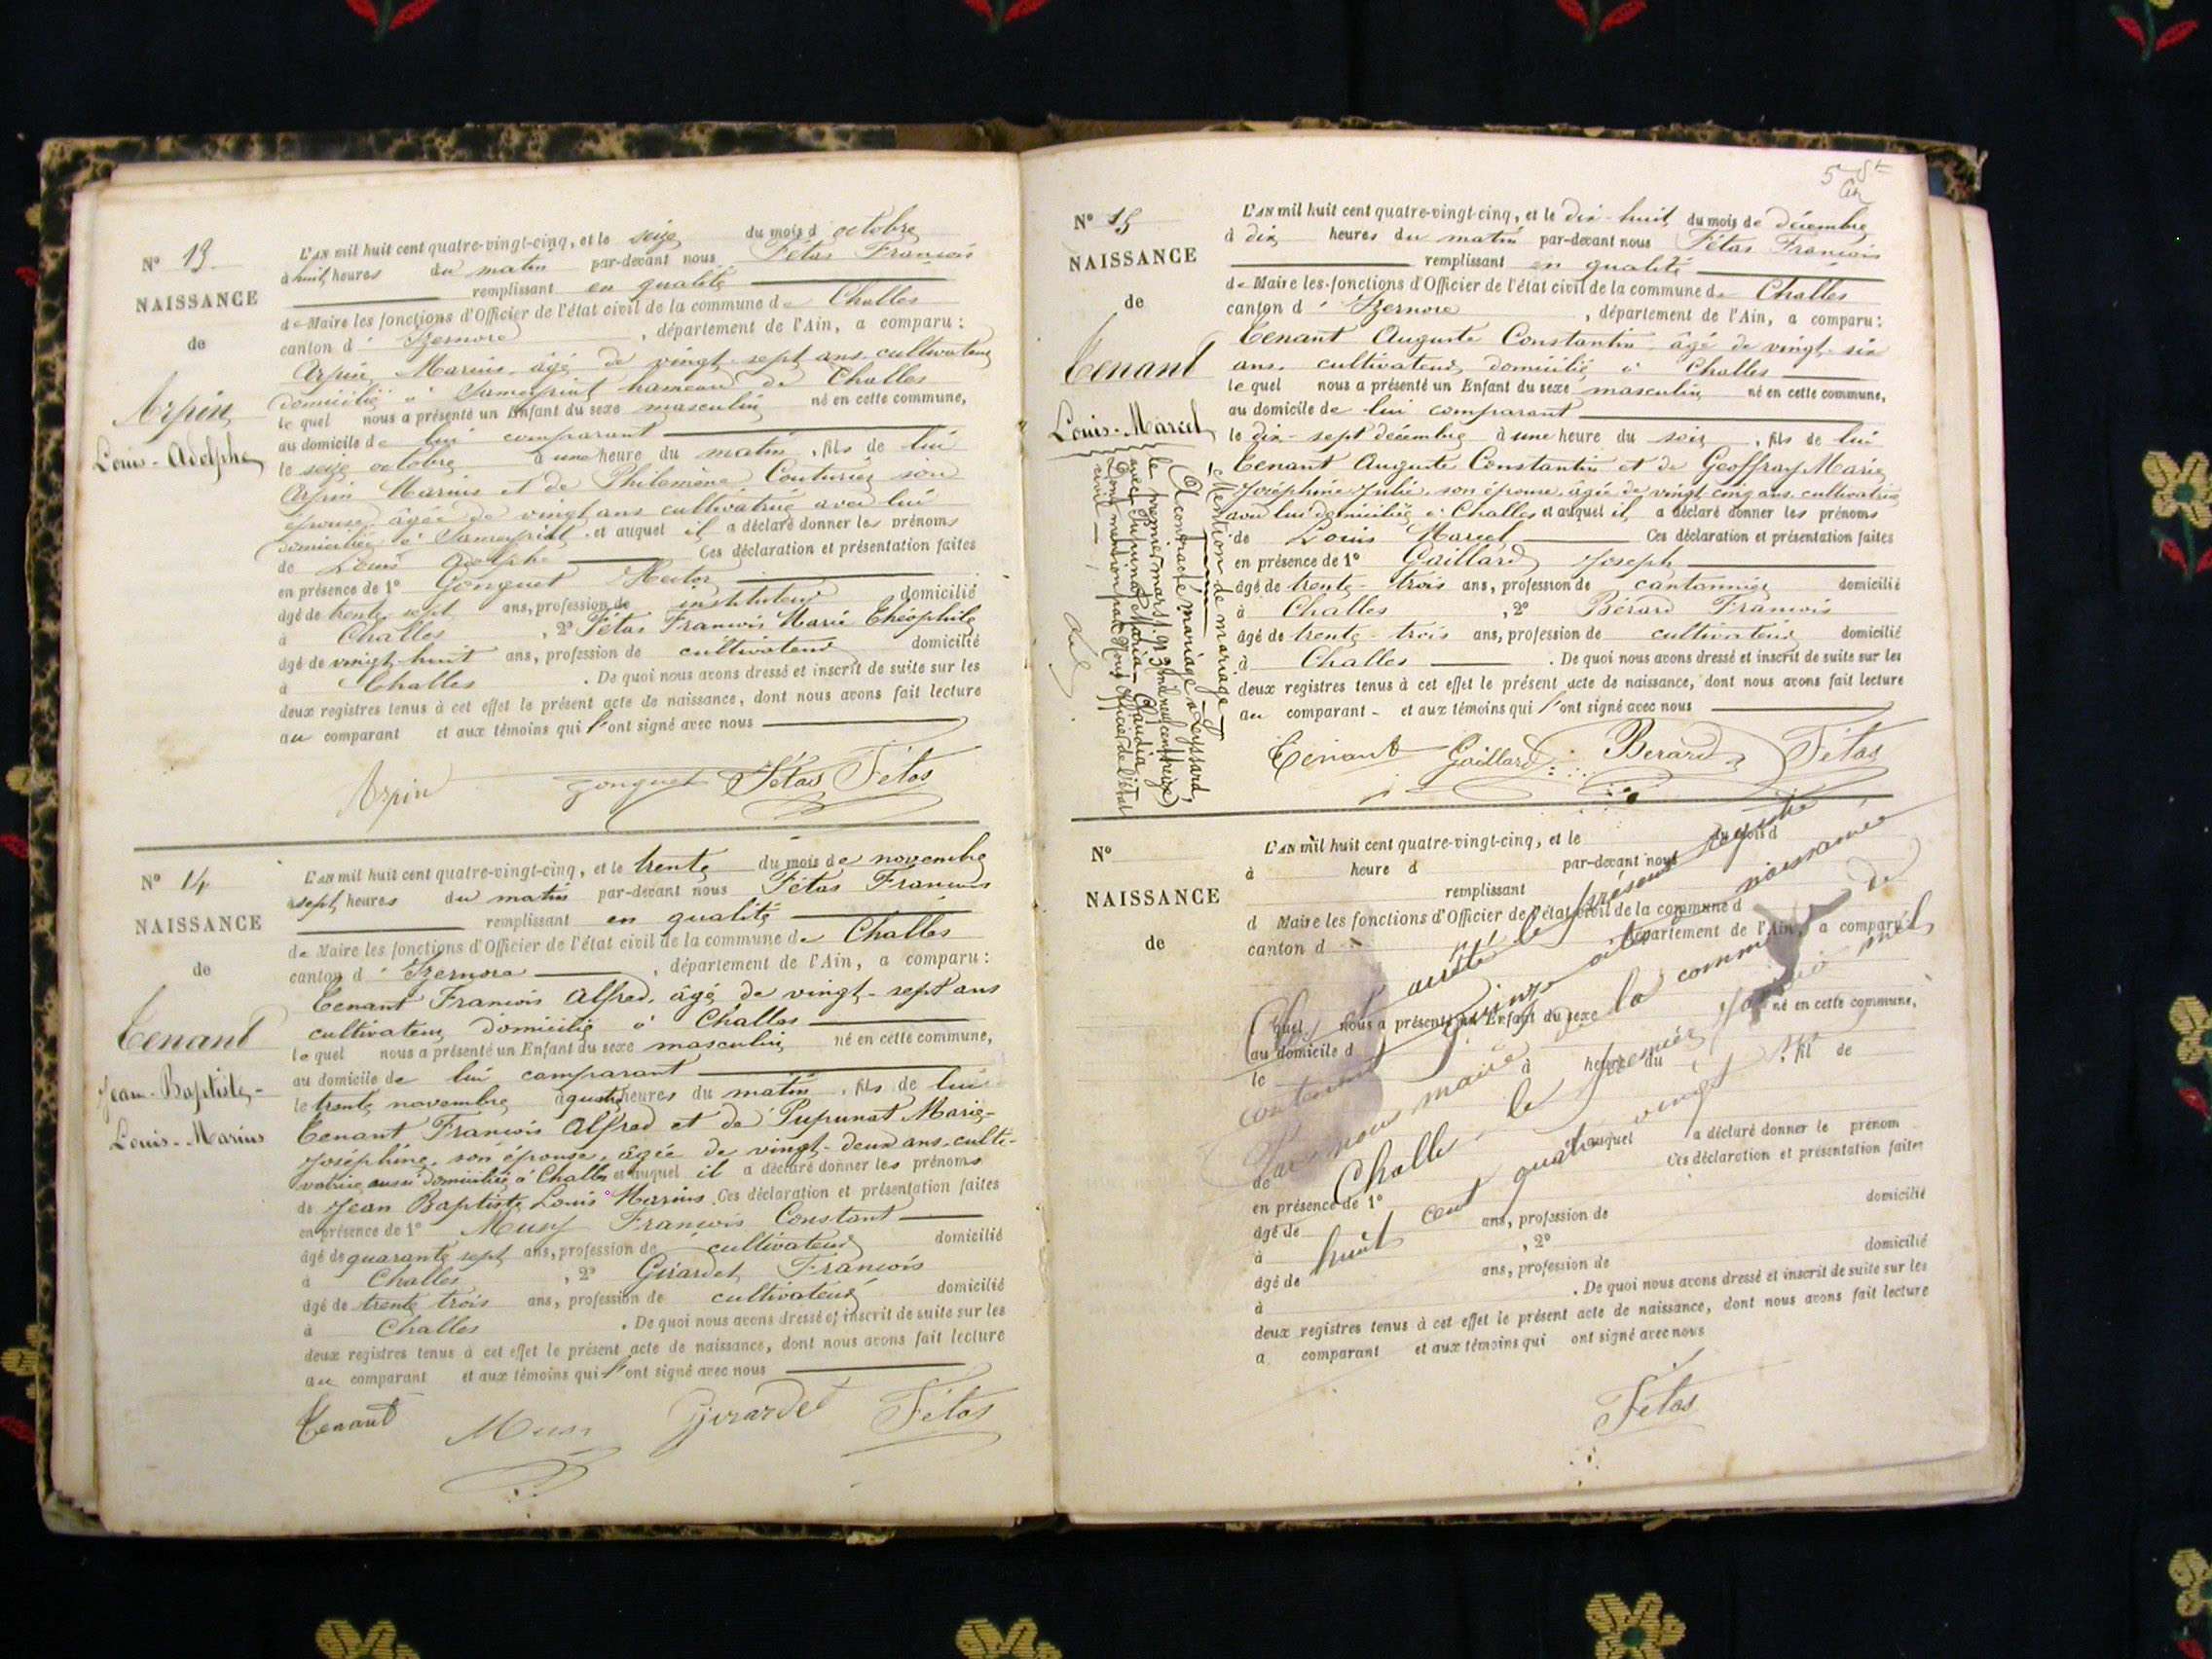 N° 13
NAISSANCE
de
Arpin
Louis-Adolphe
L'AN mil huit cent quatre-vingt-cinq, et le seize du mois d octobre
à huit heures du matin par-devant nous Fétas François
remplissant en qualité
de Maire les fonctions d'Officier de l'état civil de la commune de Challes
canton d' Izernore, département de l'Ain, a comparu :
Arpin Marius âgé de vingt-sept ans cultivateur
domicilié à hameau de Challes
lequel nous a présenté un Enfant du sexe masculin né en cette commune,
au domicile de lui comparant
le seize octobre à une heure du matin, fils de lui
Arpin Marius et de Philomène Couturier son
épouse, âgée de vingt ans cultivatrice avec lui
domiciliée à et auquel il a déclaré donner les prénoms
de Louis Adolphe Ces déclaration et présentation faites
en présence de 1° Gonguet Hector
âgé de trente sept ans, profession de instituteur domicilié
à Challes, 2° Fétas François Marie Théophile
âgé de vingt-huit ans, profession de cultivateur domicilié
à Challes. De quoi nous avons dressé et inscrit de suite sur les
deux registres tenus à cet effet le présent acte de naissance, dont nous avons fait lecture
au comparant et aux témoins qui l'ont signé avec nous
Arpin Gonguet Fétas Fétas
N° 14
NAISSANCE
de
Tenant
Jean-Baptiste-
Louis-Marius
L'AN mil huit cent quatre-vingt-cinq, et le trente du mois de novembre
à sept heures du matin par-devant nous Fétas François
remplissant en qualité
de Maire les fonctions d'Officier de l'état civil de la commune de Challes
canton d' Izernore, département de l'Ain, a comparu :
Tenant François Alfred, âgé de vingt-sept ans
cultivateur domicilié à Challes
lequel nous a présenté un Enfant du sexe masculin né en cette commune,
au domicile de lui comparant
le trente novembre à quatre heures du matin, fils de lui
Tenant François Alfred et de Pupunat Marie-
Joséphine, son épouse, âgée de vingt-deux ans culti-
vatrice aussi domiciliée à Challes et auquel il a déclaré donner les prénoms
de Jean Baptiste Louis Marius Ces déclaration et présentation faites
en présence de 1° Musy François Constant
âgé de quarante sept ans, profession de cultivateur domicilié
à Challes, 2° Girardet François
âgé de trente trois ans, profession de cultivateur domicilié
à Challes. De quoi nous avons dressé et inscrit de suite sur les
deux registres tenus à cet effet le présent acte de naissance, dont nous avons fait lecture
au comparant et aux témoins qui l'ont signé avec nous
Tenant Musy Girardet Fétas
N° 15
NAISSANCE
de
Tenant
Louis-Marcel
Mention de mariage
A contracté mariage à Leyssard,
le premier mars 1913 mil neuf cent treize
avec Pupunat Maria Claudia
Dont mention par Nous Officier de l'état
civil
L'AN mil huit cent quatre-vingt-cinq, et le dix-huit du mois de décembre
à dix heures du matin par-devant nous Fétas François
remplissant en qualité
de Maire les fonctions d'Officier de l'état civil de la commune de Challes
canton d' Izernore, département de l'Ain, a comparu :
Tenant Auguste Constantin âgé de vingt-six
ans cultivateur domicilié à Challes
lequel nous a présenté un Enfant du sexe masculin né en cette commune,
au domicile de lui comparant
le dix-sept décembre à une heure du soir, fils de lui
Tenant Auguste Constantin et de Geoffray Marie
Joséphine Julie, son épouse, âgée de vingt cinq ans cultivatrice
avec lui domiciliée à Challes et auquel il a déclaré donner les prénoms
de Louis Marcel Ces déclaration et présentation faites
en présence de 1° Gaillard Joseph
âgé de trente-trois ans, profession de cantonnier domicilié
à Challes, 2° Bérard François
âgé de trente-trois ans, profession de cultivateur domicilié
à Challes. De quoi nous avons dressé et inscrit de suite sur les
deux registres tenus à cet effet le présent acte de naissance, dont nous avons fait lecture
au comparant et aux témoins qui l'ont signé avec nous
Tenant Gaillard Berard Fétas
N°
NAISSANCE
de
L'AN mil huit cent quatre-vingt-cinq, et le du mois d
à heure d par-devant nous
remplissant
d Maire les fonctions d'Officier de l'état civil de la commune d
canton d département de l'Ain, a comparu
quel nous a présenté un Enfant du sexe né en cette commune,
au domicile d
le à heure du, fil de
et auquel a déclaré donner le prénom
de Ces déclaration et présentation faites
en présence de 1°
âgé de ans, profession de domicilié
à, 2°
âgé de ans, profession de domicilié
à. De quoi nous avons dressé et inscrit de suite sur les
deux registres tenus à cet effet le présent acte de naissance, dont nous avons fait lecture
a comparant et aux témoins qui ont signé avec nous
Clos et arrêté le présent registre
contenant quinze actes de naissance
Par nous maire de la commune de
Challes le premier janvier mil
huit cent quatre vingt
Fétas